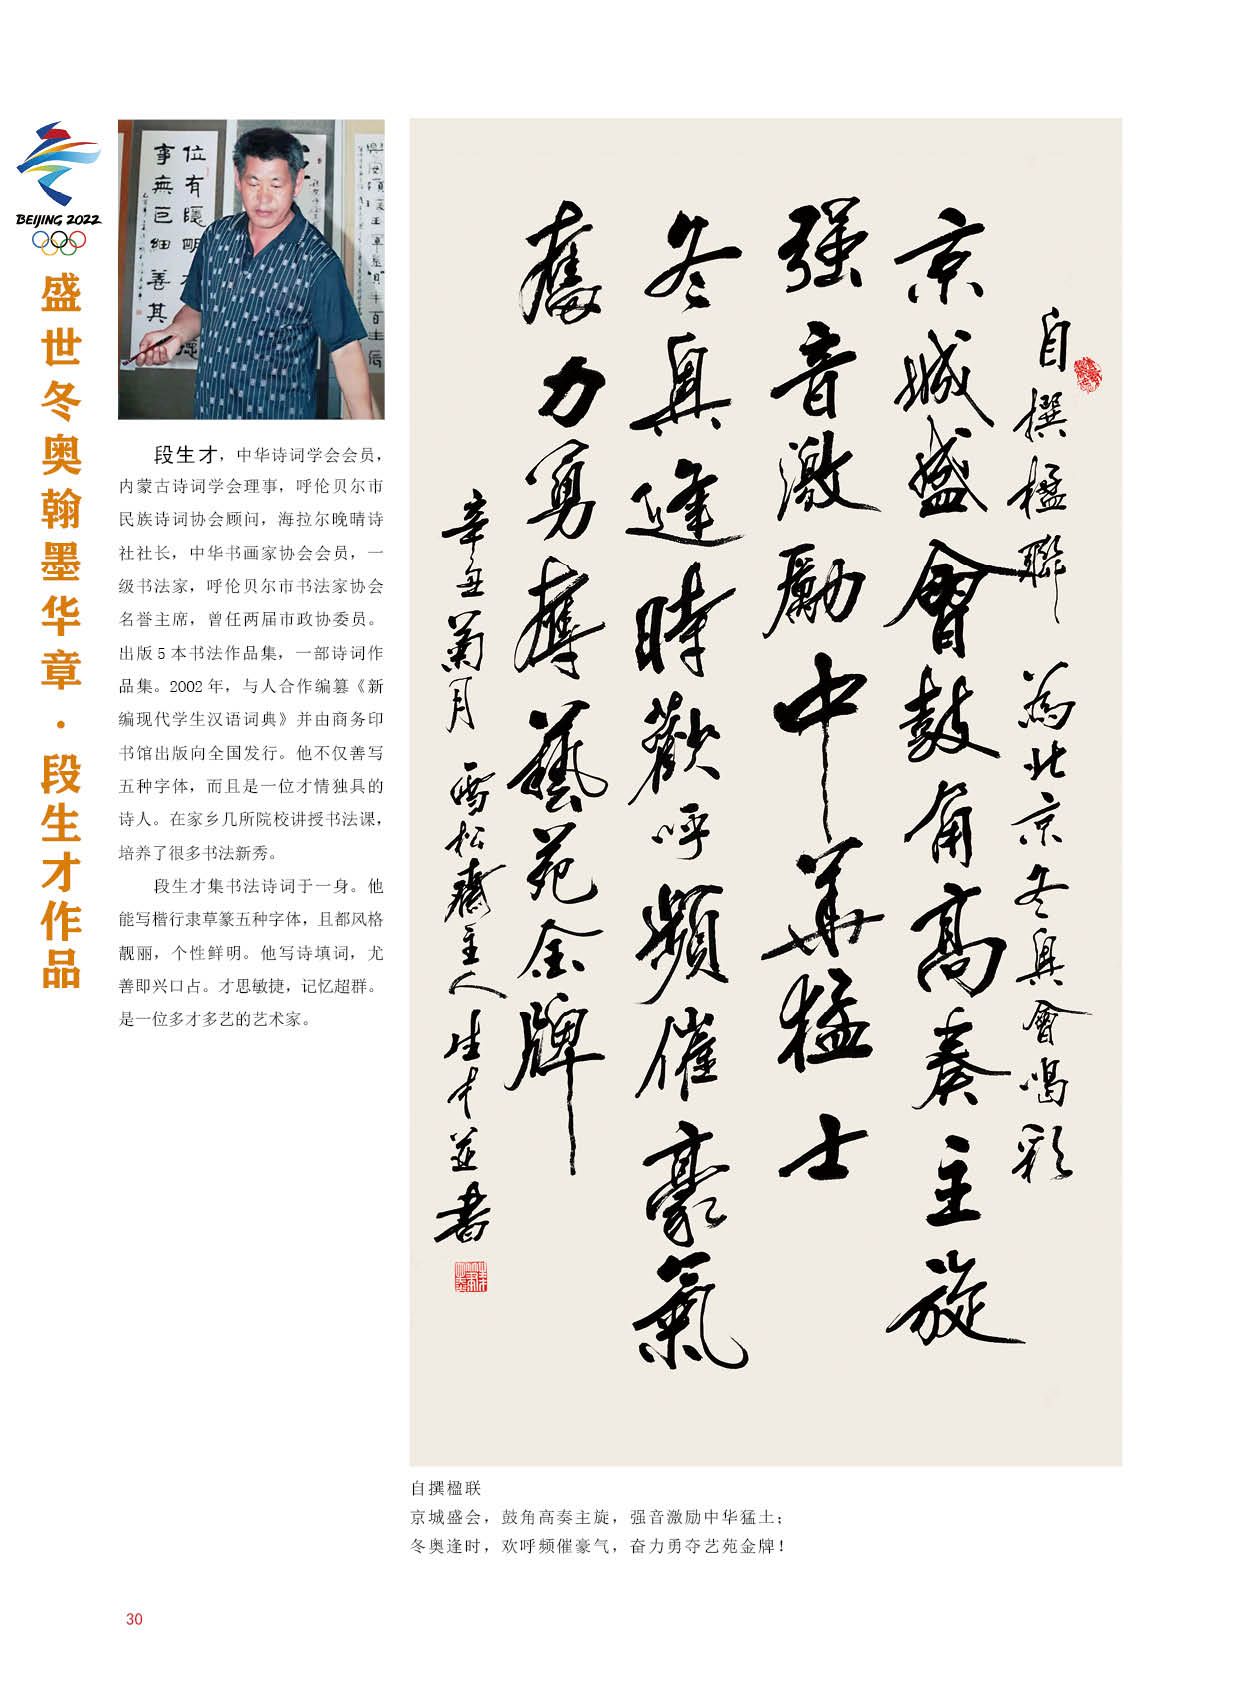 BEIJING 2022
盛世冬奥翰墨华章·段生才作品
位有隐明
事无巨细善其
段生才，中华诗词学会会员，
内蒙古诗词学会理事，呼伦贝尔市
民族诗词协会顾问，海拉尔晚晴诗
社社长，中华书画家协会会员，一
级书法家，呼伦贝尔市书法家协会
名誉主席，曾任两届市政协委员。
出版5本书法作品集，一部诗词作
品集。2002年，与人合作编篡《新
编现代学生汉语词典》并由商务印
书馆出版向全国发行。他不仅善写
五种字体，而且是一位才情独具的
诗人。在家乡几所院校讲授书法课，
培养了很多书法新秀。
段生才集书法诗词于一身。他
能写楷行隶草篆五种字体，且都风格
靓丽，个性鲜明。他写诗填词，尤
善即兴口占。才思敏捷，记忆超群。
是一位多才多艺的艺术家。
自撰楹聯 為北京冬奥會喝彩
京城盛會鼓角高奏主旋
强音激勵中華猛士
冬奥逢時歡呼頻催豪氣
奮力勇奪藝苑金牌
辛丑菊月 雪松齋主人生才並書
自撰楹联
京城盛会，鼓角高奏主旋，强音激励中华猛士；
冬奥逢时，欢呼频催豪气，奋力勇夺艺苑金牌！
30